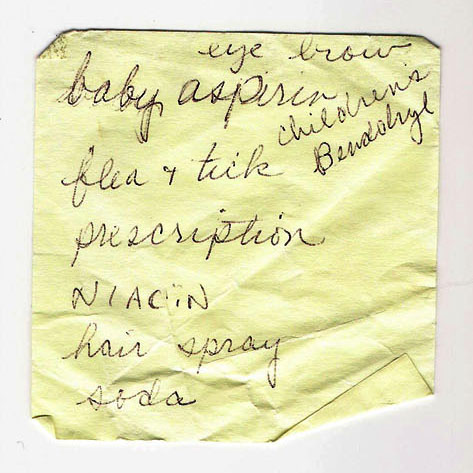 eye brow
baby aspirin
children's
Benddryl
flea + tick
prescription
NIACIN
hair spray
soda